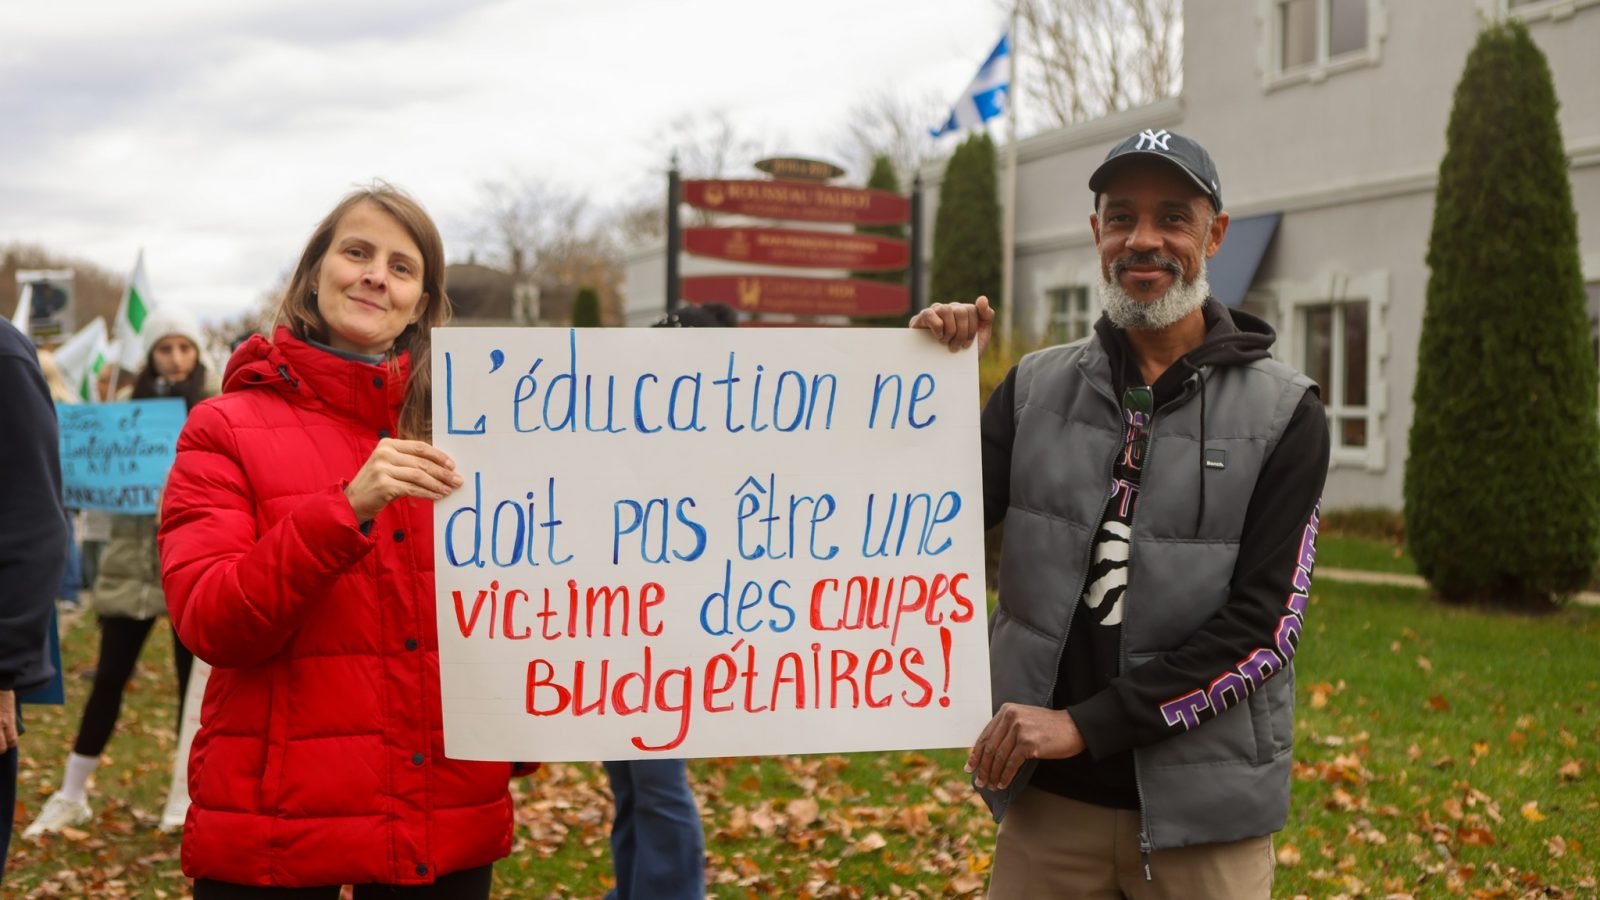 L'éducation ne
doit pas être une
victime des coupes
Budgétaires!
ROUSSEAU TALBOT
NY
Bench.
TORONTO
et
l'intégration
LA